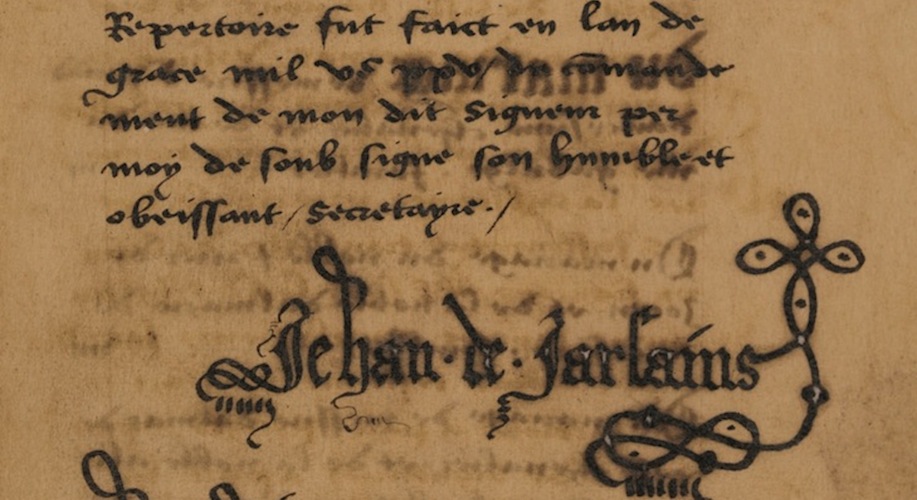 Repertoire fut faict en lan de
grace mil vc xxv / du cōmande
ment de mon dit Signeur per
moy de soub signe son humble et
obeissant / Secretayre . /
Jehan · de · Jarlains